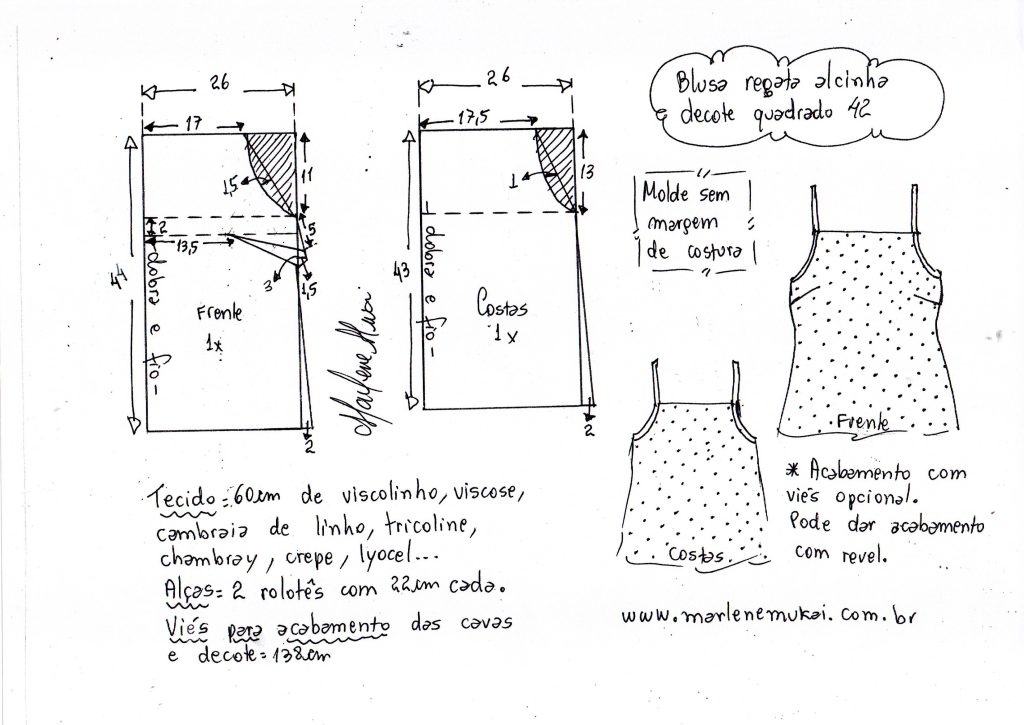 Blusa regata alcinha
e decote quadrado 42
26
17
11
1,5
2
13,5
5
3
1,5
44
dobra e fio
Frente
1x
2
Marlene Mukai
26
17,5
13
1
43
dobra e fio
Costas
1x
2
Molde sem
margem
de costura
Frente
Costas
* Acabamento com
viés opcional.
Pode dar acabamento
com revel.
Tecido= 60cm de viscolinho, viscose,
cambraia de linho, tricoline,
chambray, crepe, lyocel...
Alças= 2 rolotês com 22cm cada.
Viés para acabamento das cavas
e decote= 138cm
www.marlenemukai.com.br